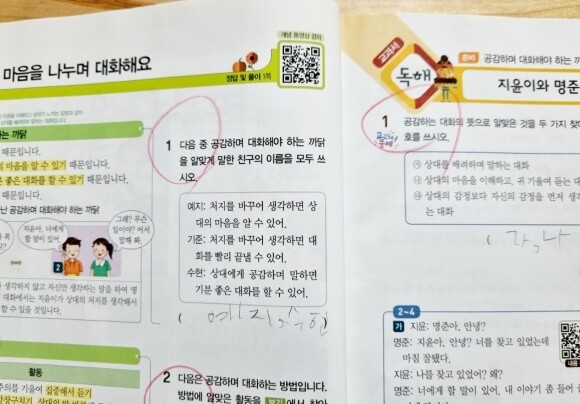 마음을 나누며 대화해요
개념 동영상 강의
정답 및 풀이 1쪽
하는 까닭
때문입니다.
의 마음을 알 수 있기 때문입니다.
분 좋은 대화를 할 수 있기 때문입니다.
난 공감하며 대화해야 하는 까닭
지윤아, 너에게
할 말이 있어.
그래? 무슨
일이야? 어서
말해 봐.
2
생각하지 않고 자신만 생각하는 말을 하여 명
대화에서는 지윤이가 상대의 처지를 생각해서
할 수 있을 것입니다.
활동
주의를 기울여 집중해서 듣기
1 다음 중 공감하며 대화해야 하는 까닭
을 알맞게 말한 친구의 이름을 모두 쓰
시오.
예지: 처지를 바꾸어 생각하면 상
대의 마음을 알 수 있어.
기준: 처지를 바꾸어 생각하면 대
화를 빨리 끝낼 수 있어.
수현: 상대에게 공감하며 말하면
기분 좋은 대화를 할 수 있어.
( 예지, 수현
2 다음은 공감하며 대화하는 방법입니다.
방법에 알맞은 활동을 보기에서 찾아
교과서
독해
준비 공감하며 대화해야 하는 까
지윤이와 명준
1 공감하는 대화의 뜻으로 알맞은 것을 두 가지 찾아
호를 쓰시오.
㉮ 상대를 배려하며 말하는 대화
㉯ 상대의 마음을 이해하고, 귀 기울여 듣는 대
㉰ 상대의 감정보다 자신의 감정을 먼저 생각
는 대화
( 가, 나
2~4
가 지윤: 명준아, 안녕?
명준: 지윤아, 안녕? 너를 찾고 있었는데
마침 잘됐다.
지윤: 나를 찾고 있었어? 왜?
명준: 너에게 할 말이 있어. 내 이야기 좀 들어